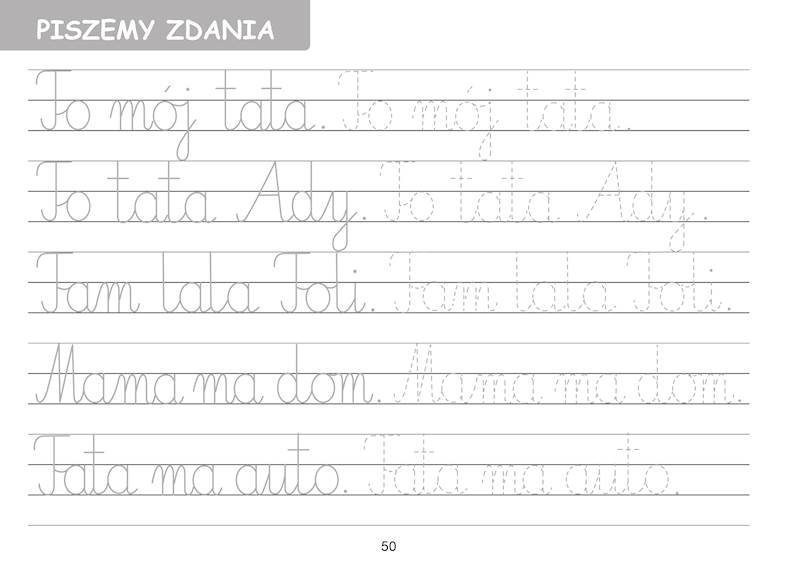 PISZEMY ZDANIA
To mój tata. To mój tata.
To tata Ady. To tata Ady.
Tam lala Toli. Tam lala Toli.
Mama ma dom. Mama ma dom.
Tata ma auto. Tata ma auto.
50